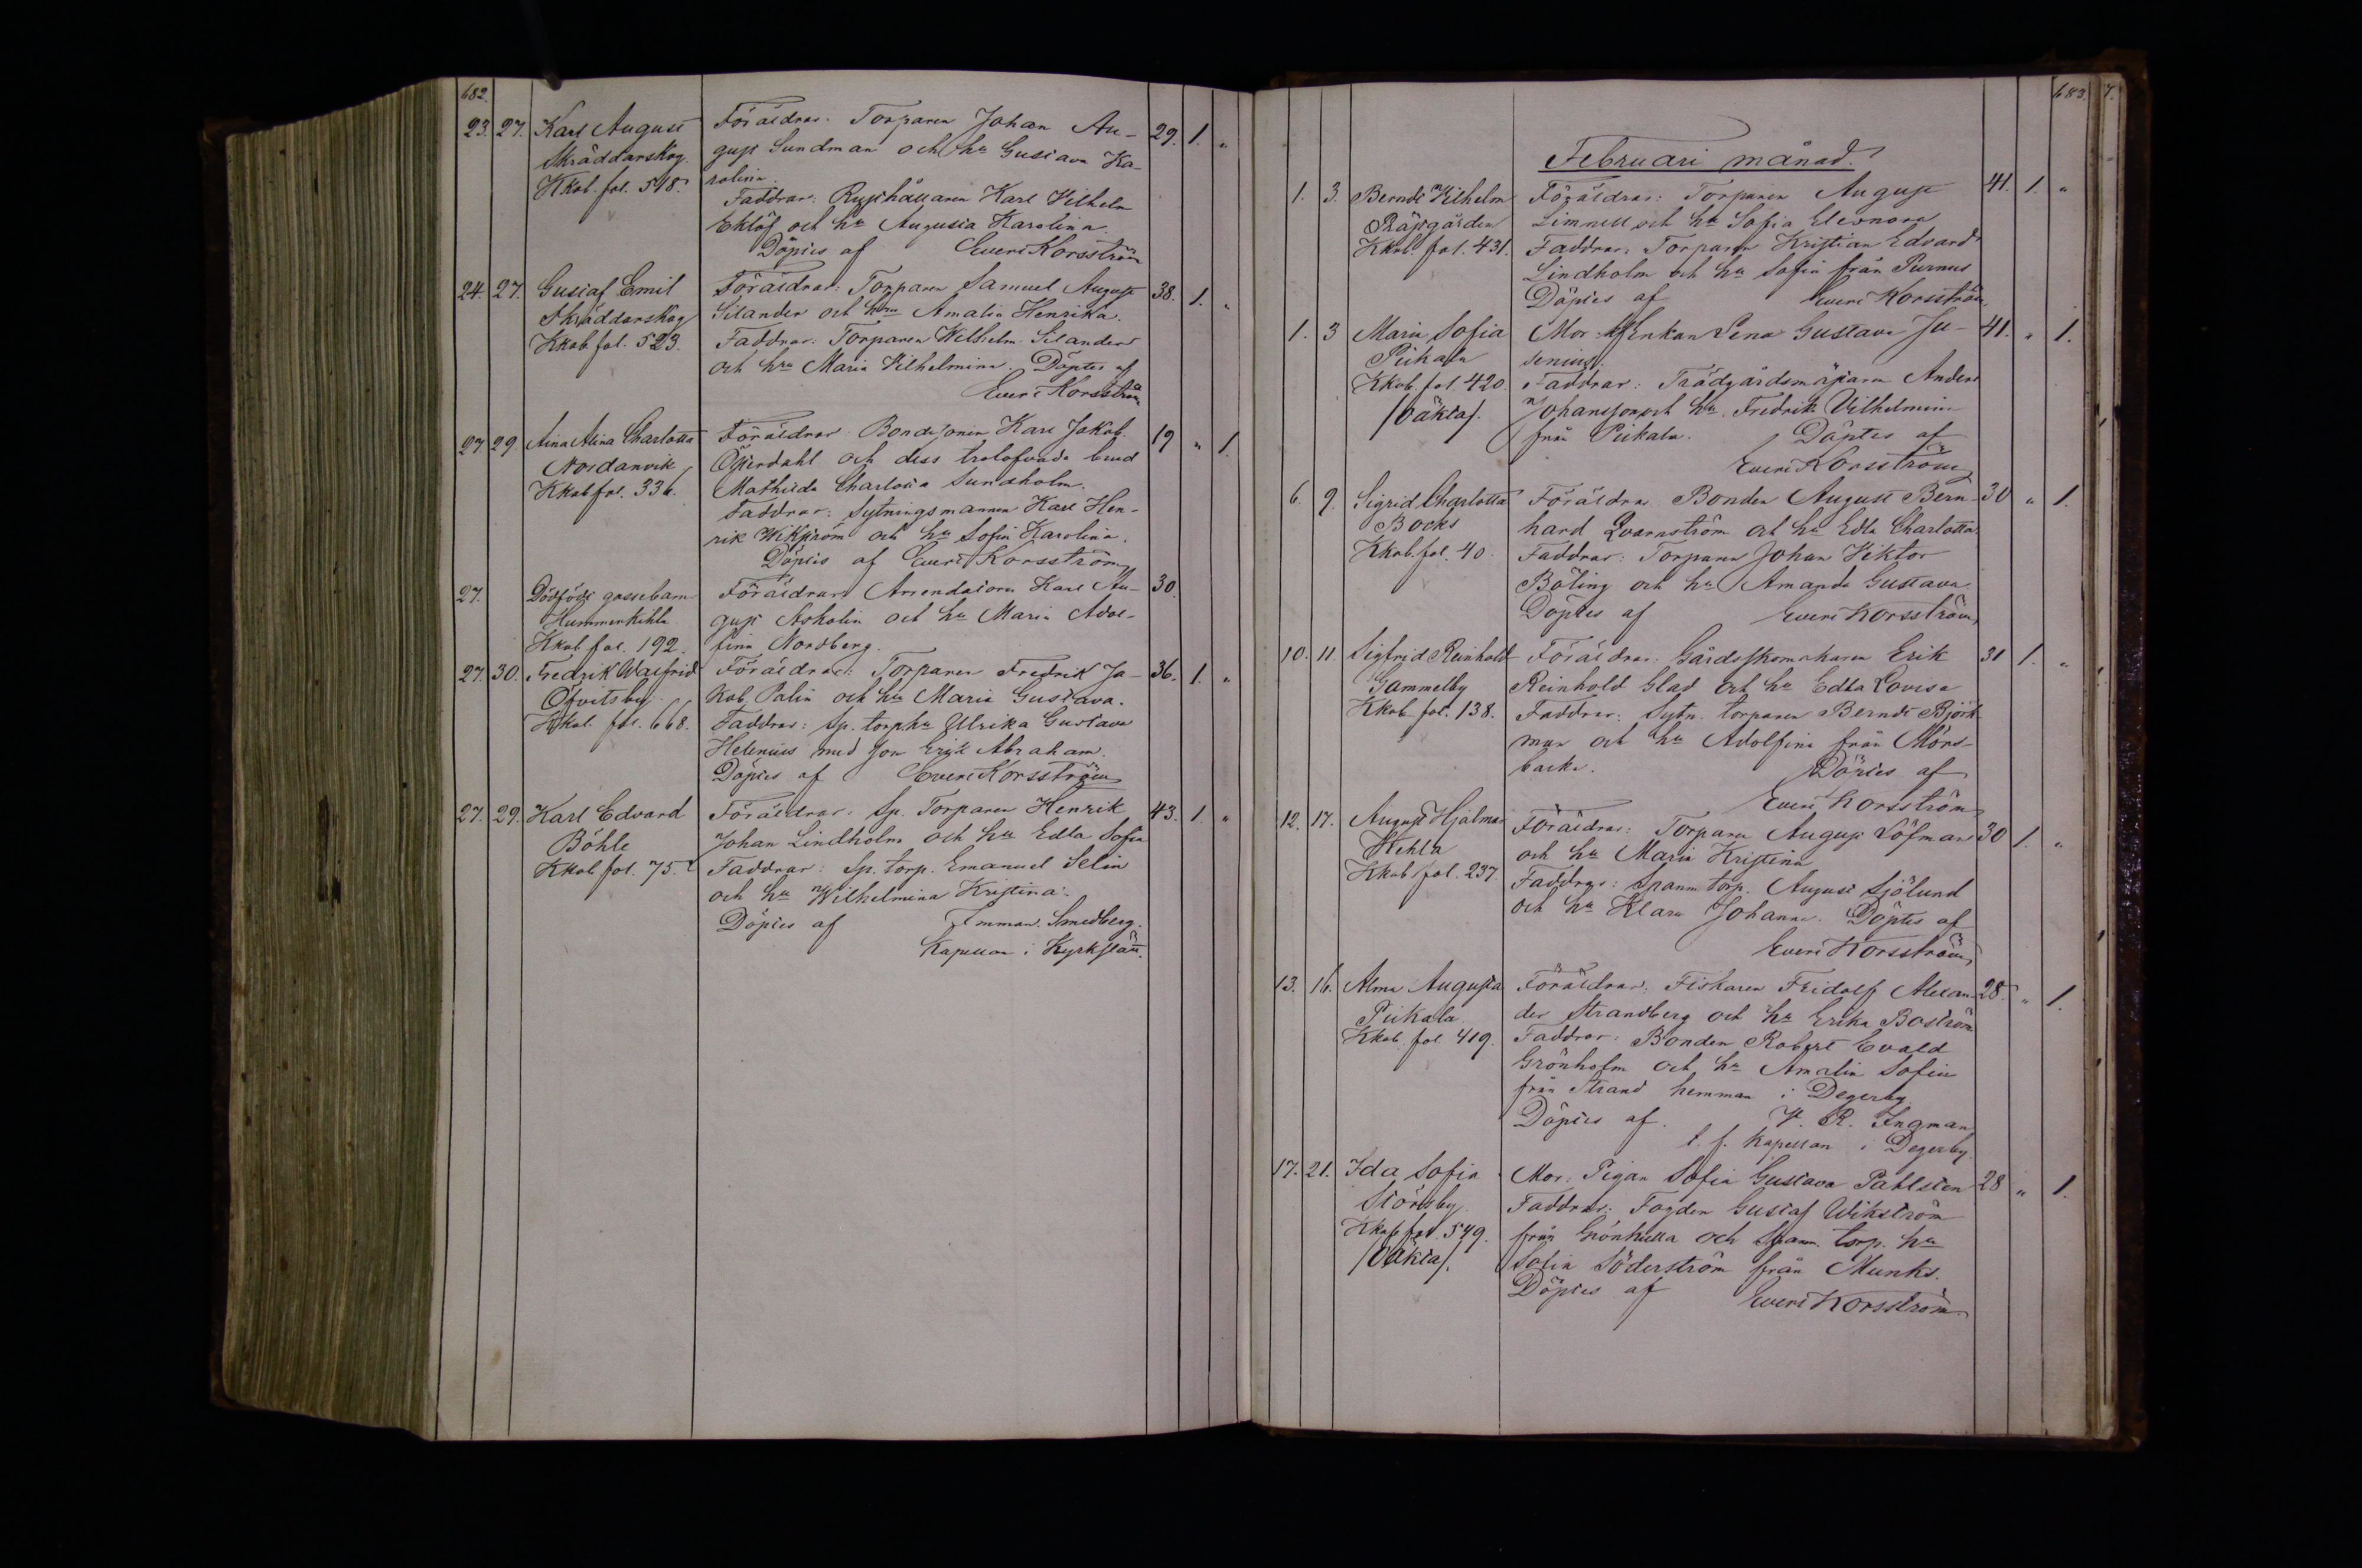 682.
23. 27. Karl August Föräldrar: Torparen Johan Au- 29. 1. "
Skräddarskog. gust Sundman och hu Gustava Ka-
Kkob. fol. 518. rolina.
Faddrar: Rusthållaren Karl Vilhelm
Eklöf och hu Augusta Karolina.
Döptes af Evert Korsström
24. 27. Gustaf Emil Föräldrar: Torparen Samuel August 38. 1. "
Skräddarskog Silander och hu Amalia Henrika.
Kkob. fol. 523. Faddrar: Torparen Wilhelm Silander
och hu Maria Vilhelmina. Döptes af
Evert Korsström
27. 29. Aina Alina Charlotta Föräldrar Bondesonen Karl Jakob 19 " 1.
Nordanvik Österdahl och dess trolofvade brud
Kkob fol. 336. Mathilda Charlotta Sundholm.
Faddrar: Sytningsmannen Karl Hen-
rik Wikström och hu Sofia Karolina.
Döptes af Evert Korsström
27. Dödfödt gossebarn Föräldrar Arrendatorn Karl Au- 30.
Hummerkihla gust Asholin och hu Maria Adol-
Kkob fol. 192. fina Nordberg.
27. 30. Fredrik Walfrid Föräldrar: Torparen Fredrik Ja- 36. 1. "
Öfvitsby kob Palin och hu Maria Gustava.
Kkob. fol. 668. Faddrar: Sp. torp.hu Ulrika Gustava
Helenius med son Erik Abraham.
Döptes af Evert Korsström
27. 29. Karl Edvard Föräldrar: Sp. Torparen Henrik 43. 1. "
Böhle Johan Lindholm och hu Edla Sofia
Kkob fol. 75. Faddrar: Sp. torp. Emanuel Selin
och hu Wilhelmina Kristina.
Döptes af Emman. Smedberg.
Kapellan i Kyrkslätt.
683. 7.
Februari månad.
1. 3. Berndt Vilhelm Föräldrar: Torparen August 41. 1. "
Prästgården Limnell och hu Sofia Eleonora
Kkob. fol. 431. Faddrar: Torparen Kristian Edvard
Lindholm och hu Sofia från Purnus
Döptes af Evert Korsström
1. 3 Maria Sofia Mor: Enkan Lena Gustava Ju- 41. " 1.
Pikala senius.
Kkob. fol. 420 Faddrar: Trädgårdsmästaren Anders
/Oäkta/. Johansson och hu Fredrika Vilhelmina
från Pikala. Döptes af
Evert Korsström
6. 9. Sigrid Charlotta Föräldrar Bonden August Bern- 30 " 1.
Bocks hard Qvarnström och hu Edla Charlotta
Kkob. fol. 40. Faddrar: Torparen Johan Viktor
Böling och hu Amanda Gustava
Döptes af Evert Korsström
10. 11. Sigfrid Reinhold Föräldrar: Gårdsskomakaren Erik 31 1. "
Gammelby Reinhold Glad och hu Edla Lovisa
Kkob fol. 138. Faddrar: Sytn. torparen Berndt Björk-
man och hu Adolfina från Mörs-
backa. Döptes af
Evert Korsström
12. 17. August Hjalmar Föräldrar: Torparen August Löfman 30 1. "
Kehla och hu Maria Kristina
Kkob fol. 237. Faddrar: Spanm torp. August Sjölund
och hu Klara Johanna. Döptes af
Evert Korsström
13. 16. Alma Augusta Föräldrar: Fiskaren Fridolf Alexan- 28. " 1.
Pikala der Strandberg och hu Erika Boström
Kkob. fol. 419. Faddrar: Bonden Robert Evald
Grönholm och hu Amalia Sofia
från Strand hemman i Degerby
Döptes af. V. R. Ingman
t. f. Kapellan i Degerby.
17. 21. Ida Sofia Mor: Pigan Sofia Gustava Pahlsten 28 " 1.
Störsby Faddrar: Fogden Gustaf Wikström
Kkob fol. 549. från Grönkulla och Spanm. torp. hu
/Oäkta/. Sofia Söderström från Munks.
Döptes af Evert Korsström